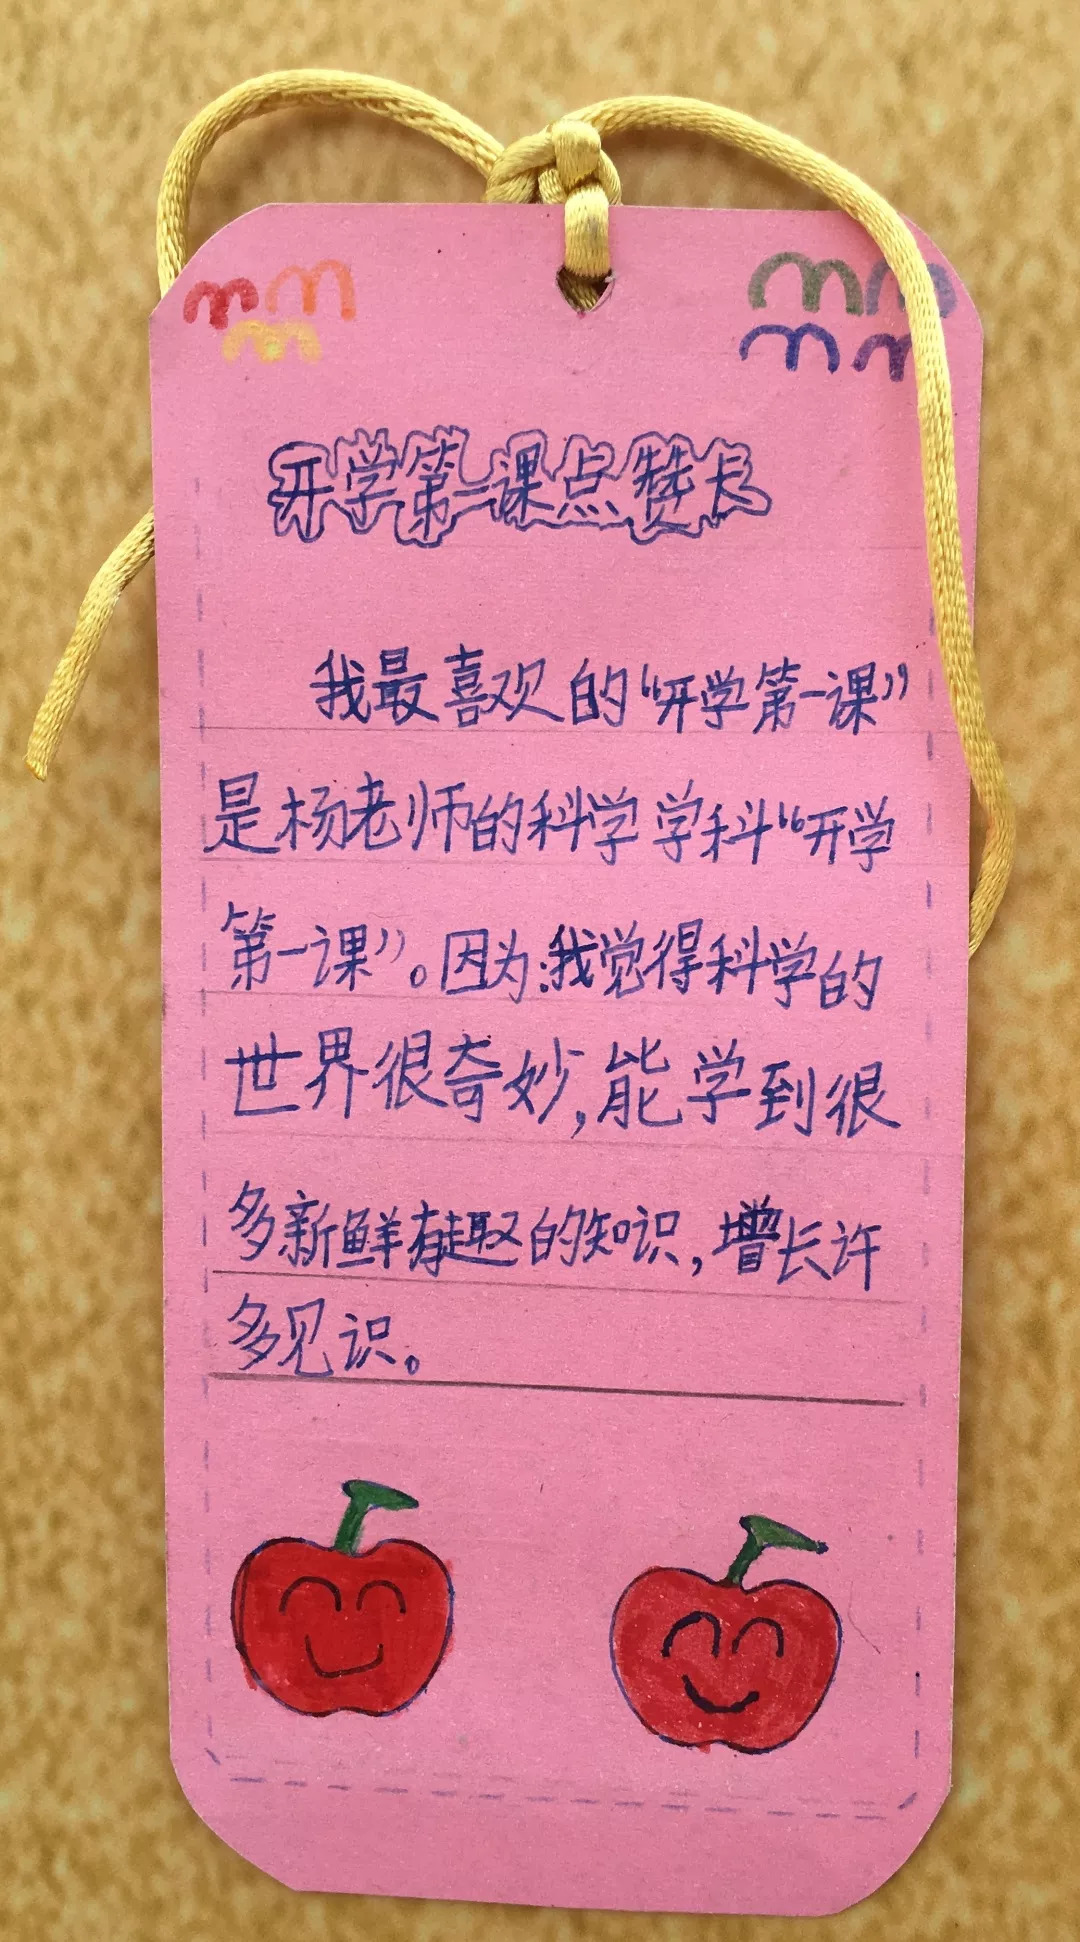 开学第一课点赞卡
我最喜欢的“开学第一课”
是杨老师的科学学科“开学
第一课”。因为:我觉得科学的
世界很奇妙,能学到很
多新鲜有趣的知识,增长许
多见识。